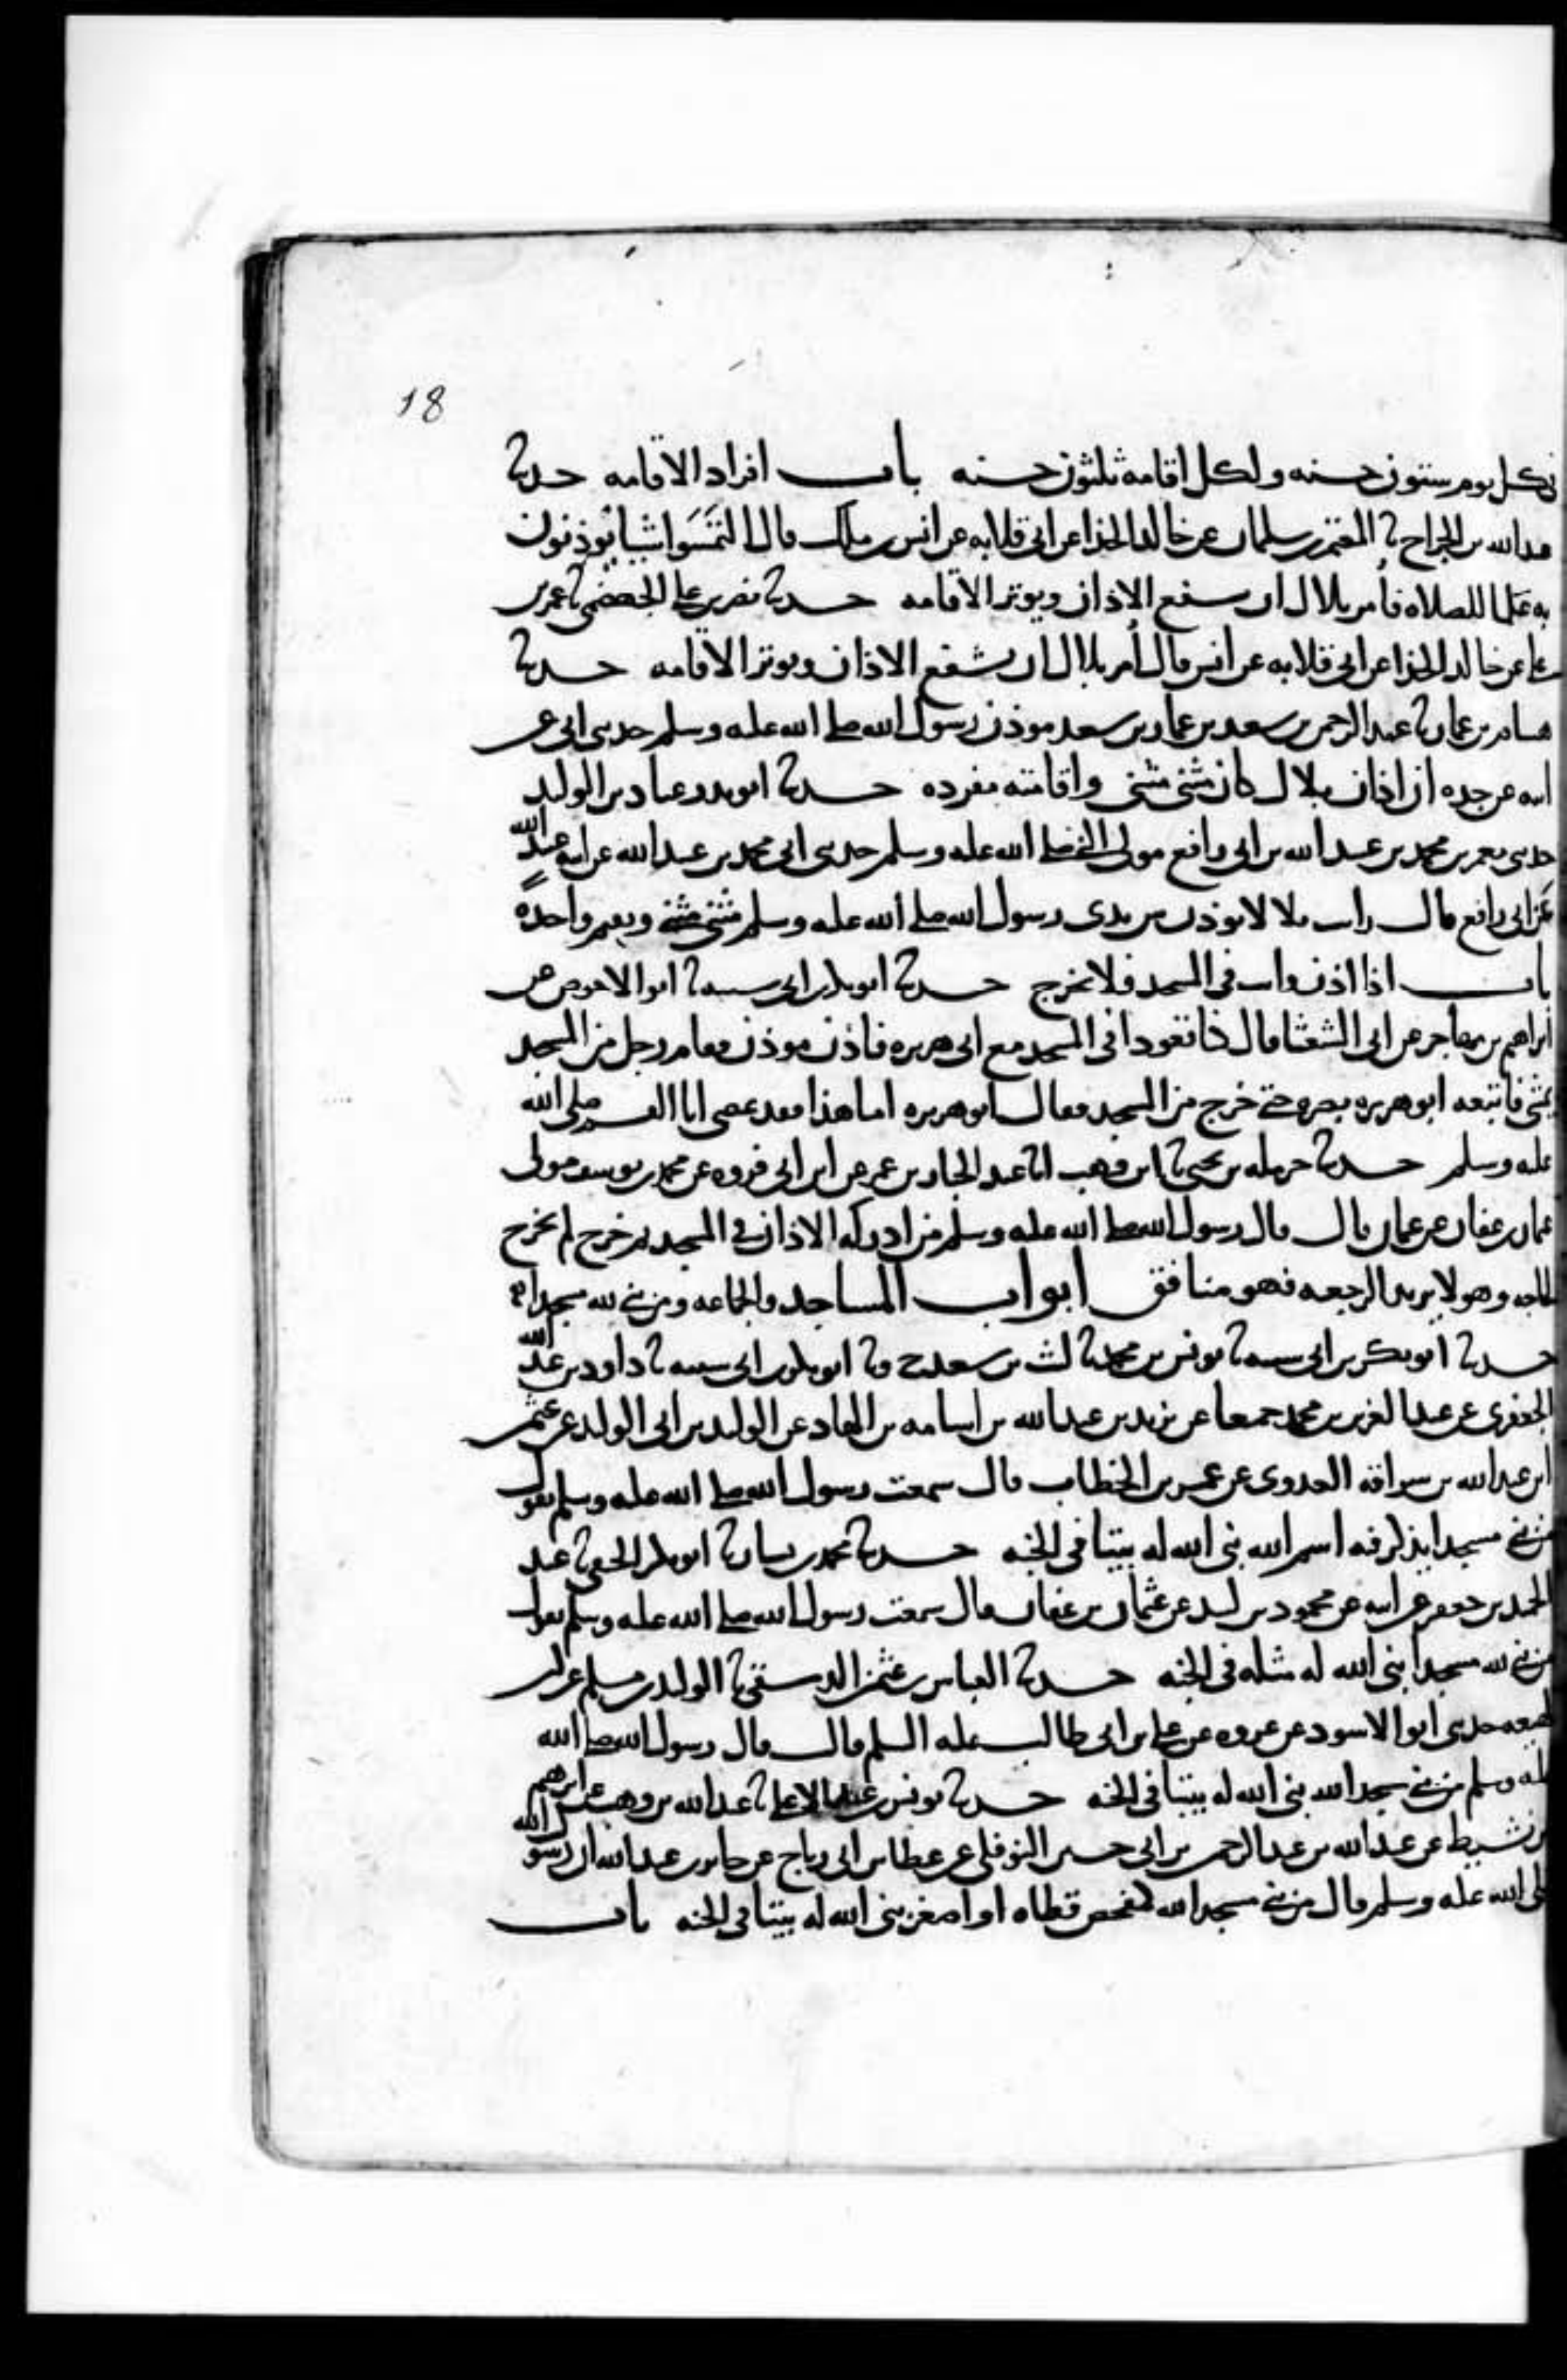 18
في كل يوم ستون حسنه ولكل اقامه ثلثون حسنه باب افراد الاقامه حدثنا
عبدالله بن الجراح ثنا المعتمر بن سلمان عن خالد الحذا عن ابي قلابه عن انس بن ملك قال التمسوا شيا يوذنون
به علما للصلاه فأمر بلال ان يشفع الاذان ويوتر الاقامه حدثنا نصر بن علي الجهضمي ثنا عمر بن
علي عن خالد الحذا عن ابي قلابه عن انس قال أمر بلال ان يشفع الاذان ويوتر الاقامه حدثنا
هشام بن عمار ثنا عبد الرحمن بن سعد بن عمار بن سعد موذن رسول الله صلى الله عليه وسلم حدثني ابي عن
ابيه عن جده ان اذان بلال كان مثنى مثنى واقامته مفرده حدثنا ابو بدر عباد بن الوليد
حدثني معمر بن محمد بن عبد الله بن ابي رافع مولى النبي صلى الله عليه وسلم حدثني ابي محمد بن عبد الله عن ابيه عبيد الله
عن ابي رافع قال رايت بلالا يوذن بين يدي رسول الله صلى الله عليه وسلم مثنى مثنى ويقيم واحدة
باب اذا اذن وانت في المسجد فلا تخرج حدثنا ابو بكر بن ابي شيبه ثنا ابو الاحوص عن
ابراهيم بن مهاجر عن ابي الشعثا قال كنا قعودا في المسجد مع ابي هريره فاذن موذن فقام رجل من المسجد
يمشي فاتبعه ابو هريره بصره حتى خرج من المسجد فقال ابو هريره اما هذا فقد عصى ابا القسم صلى الله
عليه وسلم حدثنا حرمله بن يحيى ثنا ابن وهب انا عبد الجبار بن عمر عن ابن ابي فروه عن محمد بن يوسف مولى
عثمان بن عفان عن عثمان قال قال رسول الله صلى الله عليه وسلم من ادركه الاذان في المسجد ثم خرج لم يخرج
لحاجه وهو لا يريد الرجعه فهو منافق ابواب المساجد والجماعه ومن بنى لله مسجدا
حدثنا ابو بكر بن ابي شيبه ثنا يونس بن محمد ثنا ليث بن سعد ح وثنا ابو بكر بن ابي شيبه ثنا داود بن عبد الله
الجعفري عن عبد العزيز بن محمد جميعا عن يزيد بن عبد الله بن اسامه بن الهاد عن الوليد بن ابي الوليد عن عثمن
ابن عبد الله بن سراقه العدوي عن عمر بن الخطاب قال سمعت رسول الله صلى الله عليه وسلم يقول
من بنى مسجدا يذكر فيه اسم الله بنى الله له بيتا في الجنه حدثنا محمد بن بشار ثنا ابو بكر الحنفي ثنا عبد
الحميد بن جعفر عن ابيه عن محمود بن لبيد عن عثمان بن عفان قال سمعت رسول الله صلى الله عليه وسلم يقول
من بنى لله مسجدا بنى الله له مثله في الجنه حدثنا العباس بن عثمن الدمشقي ثنا الوليد بن مسلم عن ابن
لهيعه حدثني ابو الاسود عن عروه عن علي بن ابي طالب عليه السلم قال قال رسول الله صلى الله
عليه وسلم من بنى مسجدا لله بنى الله له بيتا في الجنه حدثنا يونس بن عبد الاعلى ثنا عبد الله بن وهب عن ابرهيم
بن نشيط عن عبد الله بن عبد الرحمن بن ابي حسين النوفلي عن عطا بن ابي رباح عن جابر بن عبد الله ان رسول الله
صلى الله عليه وسلم قال من بنى مسجدا لله كمفحص قطاه او اصغر بنى الله له بيتا في الجنه باب